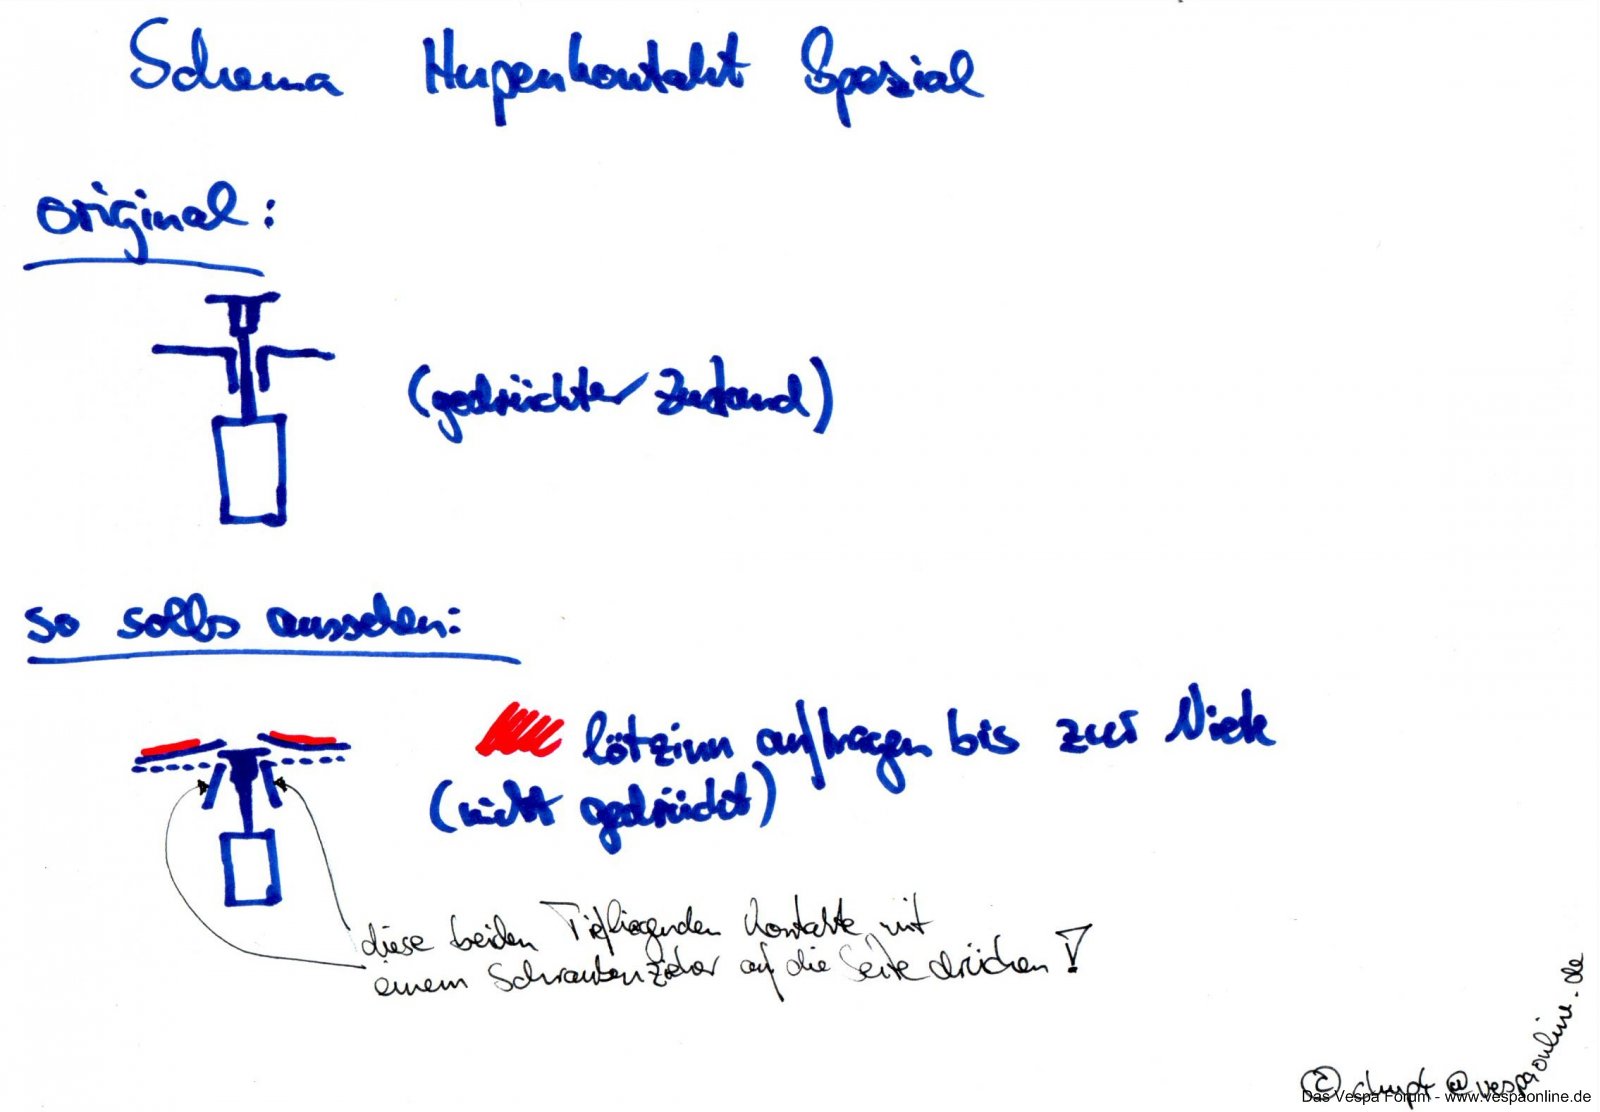 Schema Hupenkontakt Spezial
original:
(gedrückter Zustand)
so solls aussehen:
lötzinn auftragen bis zur Niete
(nicht gedrückt)
diese beiden Tiefliegenden Kontakte mit
einem Schraubenzieher auf die Seite drücken!
© @vespaonline.de
Das Vespa Forum - www.vespaonline.de